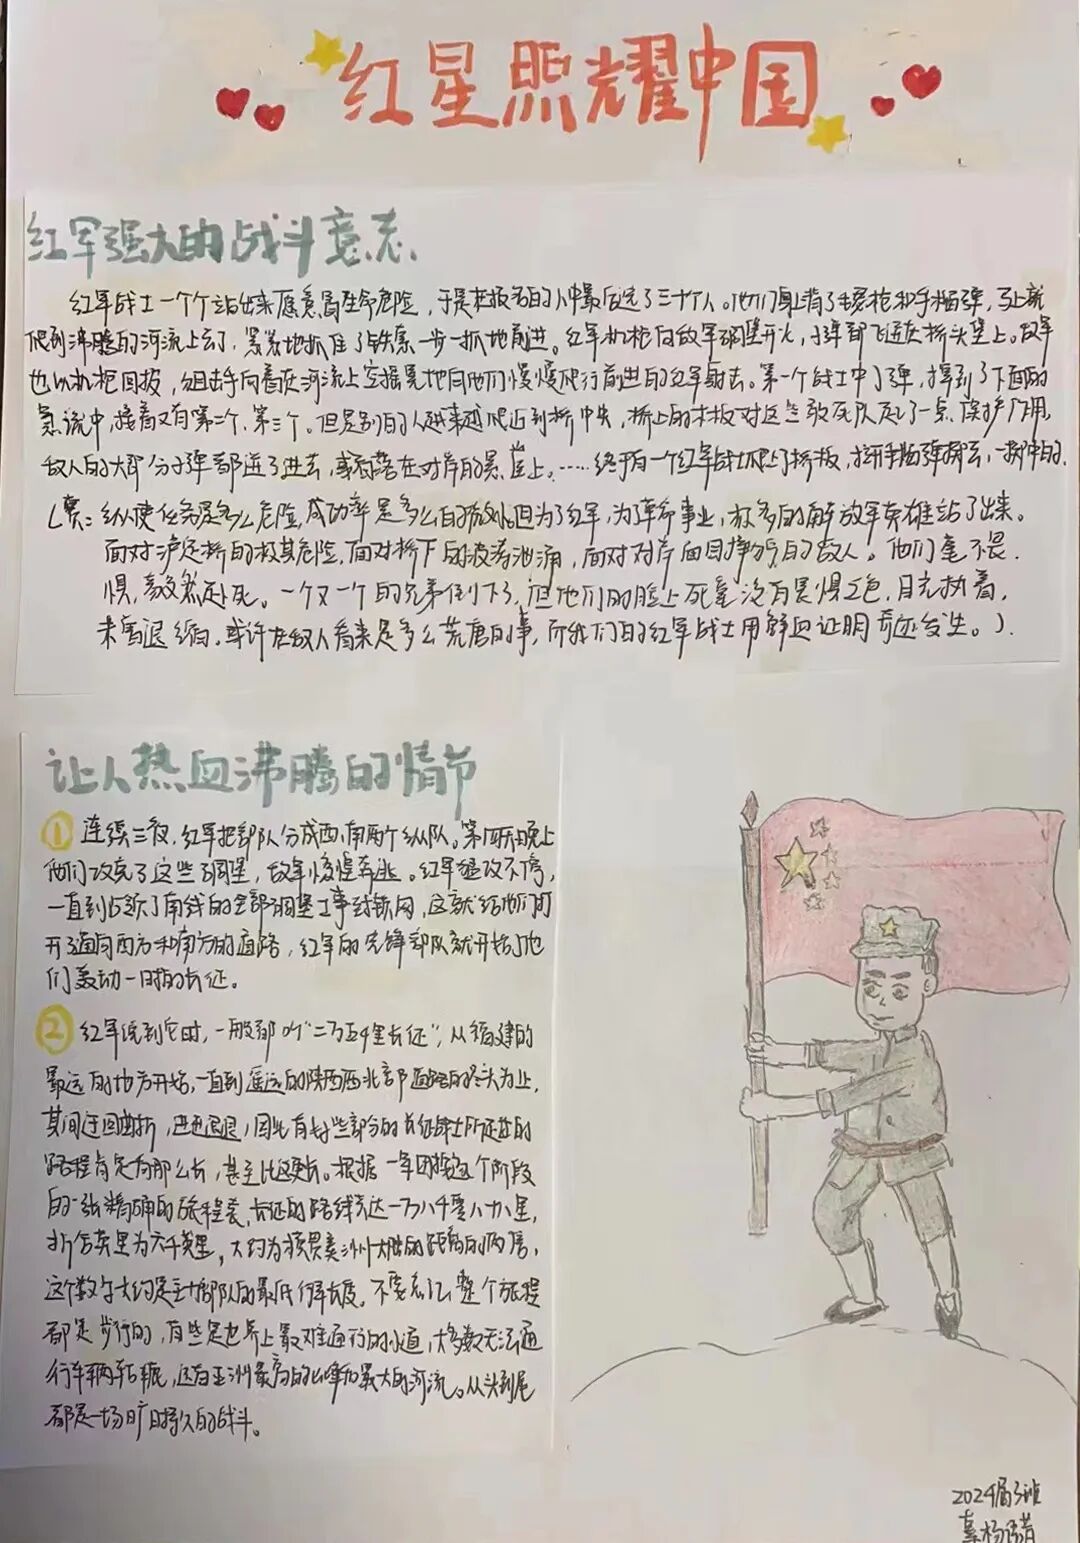 红星照耀中国
红军强大的战斗意志
红军战士一个个站出来愿意冒生命危险，于是在报名的人中最后选了三十个人。他们身上背了毛瑟枪和手榴弹，马上就
爬到沸腾的河流上去了，紧紧地抓住了铁索一步一抓地前进。红军机枪向敌军碉堡开火，子弹都飞迸在桥头堡上。敌军
也以机枪回报，狙击手向着在河流上空摇晃地向他们慢慢爬行前进的红军射去。第一个战士中了弹，掉到了下面的
急流中，接着又有第二个，第三个。但是别的人越来越爬近到桥中央，桥上的木板对这些敢死队起了一点保护作用，
敌人的大部分子弹都迸了进去，或者落在对岸的悬崖上。……终于有一个红军战士爬上了桥板，拉开手榴弹掷去，一掷中的.
（赏：纵使任务是多么危险，成功率是多么的微小，但为了红军，为了革命事业，很多的解放军英雄站了出来。
面对泸定桥的极其危险，面对桥下的波涛汹涌，面对对岸面目狰狞的敌人。他们毫不畏
惧，毅然赴死。一个又一个的兄弟倒下了，但他们的脸上死毫没有畏惧之色，目光执着，
未曾退缩。或许在敌人看来是多么荒唐的事，而我们的红军战士用鲜血证明奇迹发生。）
让人热血沸腾的情节
① 连续三夜，红军把部队分成西、南两个纵队。第四天晚上
他们攻克了这些碉堡，敌军慌慌弃逃。红军继攻不停，
一直到占领了南线的全部碉堡工事铁网，这就给他们打
开了通向西方和南方的道路，红军的先锋部队就开始了他
们轰动一时的长征。
② 红军说到它时，一般都叫“二万五千里长征”，从福建的
最远的地方开始，一直到遥远的陕西西北部道路的尽头为止，
其间迂回曲折，进进退退，因此有好些部分的长征战士所走过的
路程肯定有那么长，甚至比这更长。根据一军团按这个阶段
的一张精确的旅程表，长征的路线共达一万八千零八十八里，
折合英里为六千英里，大约为横贯美洲大陆的距离的两倍，
这个数字大约是主力部队的最低行军长度。不要忘记，整个旅程
都是步行的，有些是世界上最难通行的小道，大多数无法通
行车辆轱辘，还有亚洲最高的山峰和最大的河流。从头到尾
都是一场旷日持久的战斗。
2024届3班